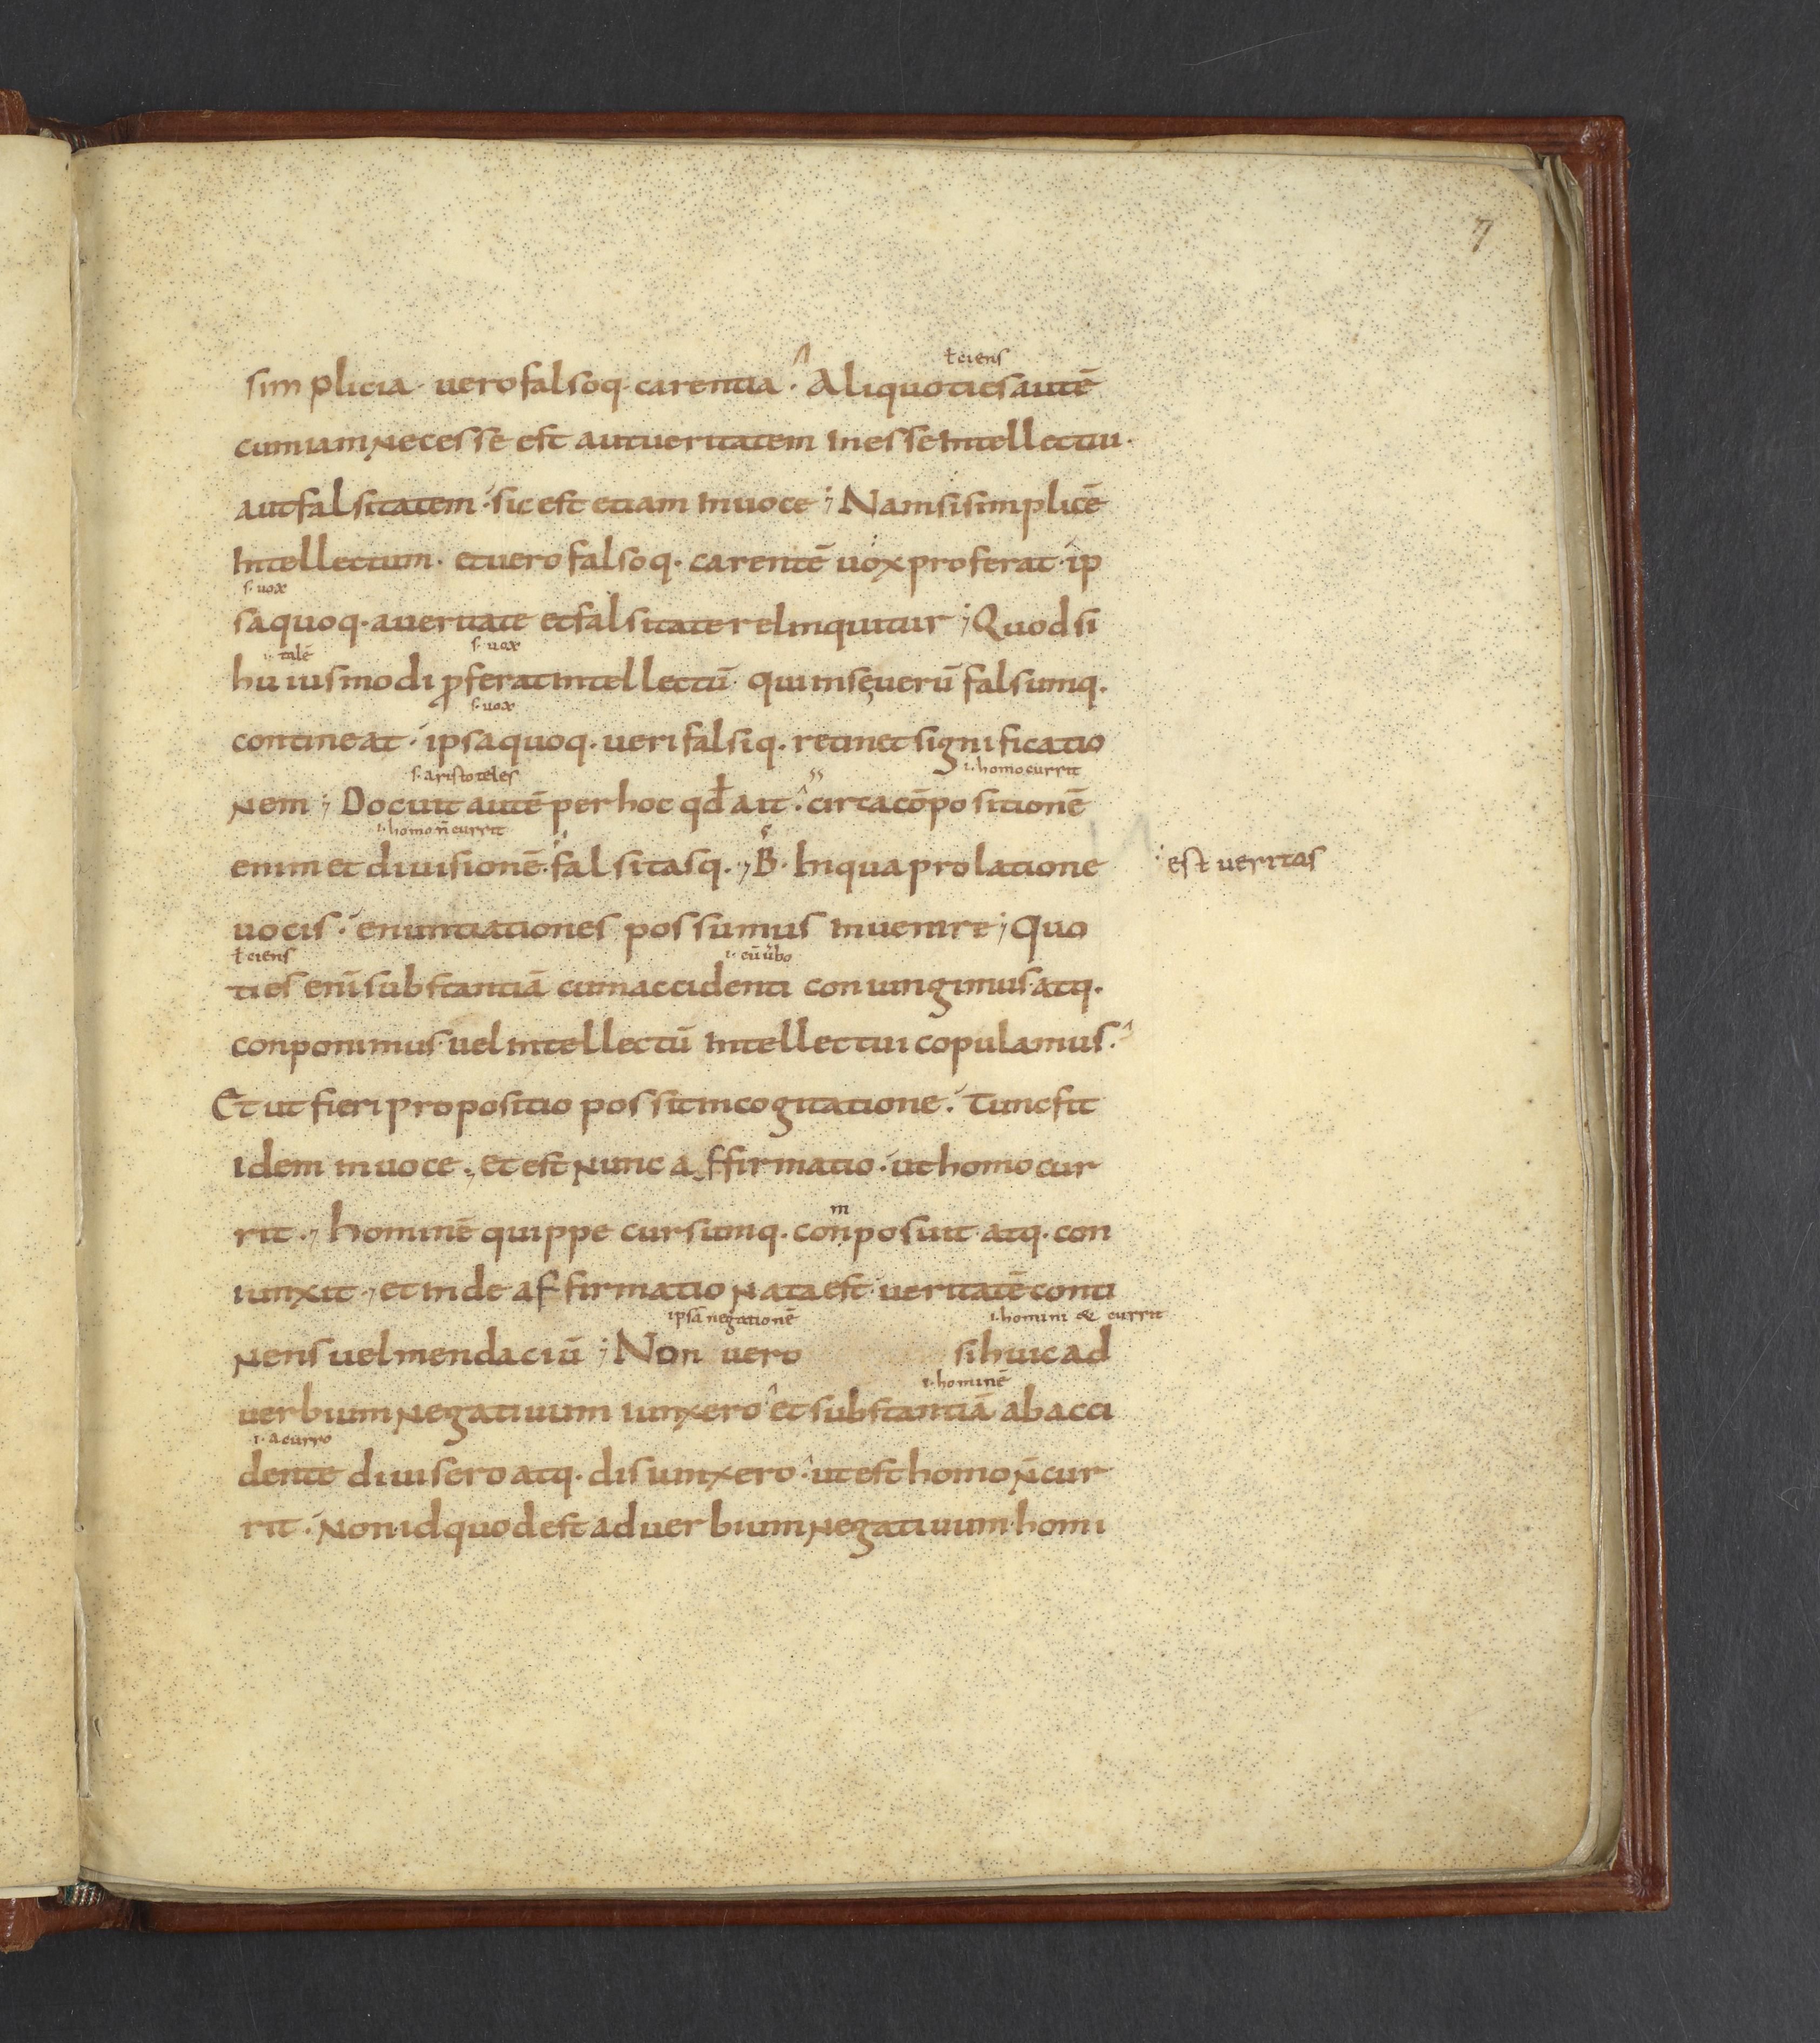 7
ł ciens
simplicia · vero falsoq· carentia · Aliquoties autē
cum iam necesse est aut veritatem inesse intellectui·
aut falsitatem · sic est etiam in uoce ; Nam si simplicē
intellectum · et uero falsoq· carentē uox proferat · ip
s· uox
sa quoq· a ueritate et falsitate relinquitur ; Quod si
i· talē s· uox
huiusmodi ꝓferat intellectū · qui in se uerū falsumq·
s· uox
contineat · ipsa quoq· ueri falsiq· retinet significatio
s· aristoteles i· homo currit
nem ; Docuit autē per hoc qd̄ ait · circa cōpositionē
i· homo n̄ currit
enim et diuisionē · falsitasq· ; B · In qua prolatione
est veritas
uocis · enuntiationes possumus inuenire ; Quo
ł ciens i· cū ūbo
ties enī substantiā cum accidenti coniungimus · atq·
conponimus · uel intellectū intellectui copulamus ·
Et ut fieri propositio possit in cogitatione · Tunc fit
idem in uoce · et est nunc affirmatio · ut homo cur
m
rit · hominē quippe cursumq· conposuit · atq· con
iunxit · et inde affirmatio nata est · ueritatē conti
ipsā negationē i· homini & currit
nens uel mendaciū ; Non uero si huic ad
i· hominē
uerbium negatiuum iunxero et substantiā ab acci
i· a curro
dente diuisero atq· disiunxero · ut est homo n̄ cur
rit · Non id quod est aduerbium negatiuum · homi